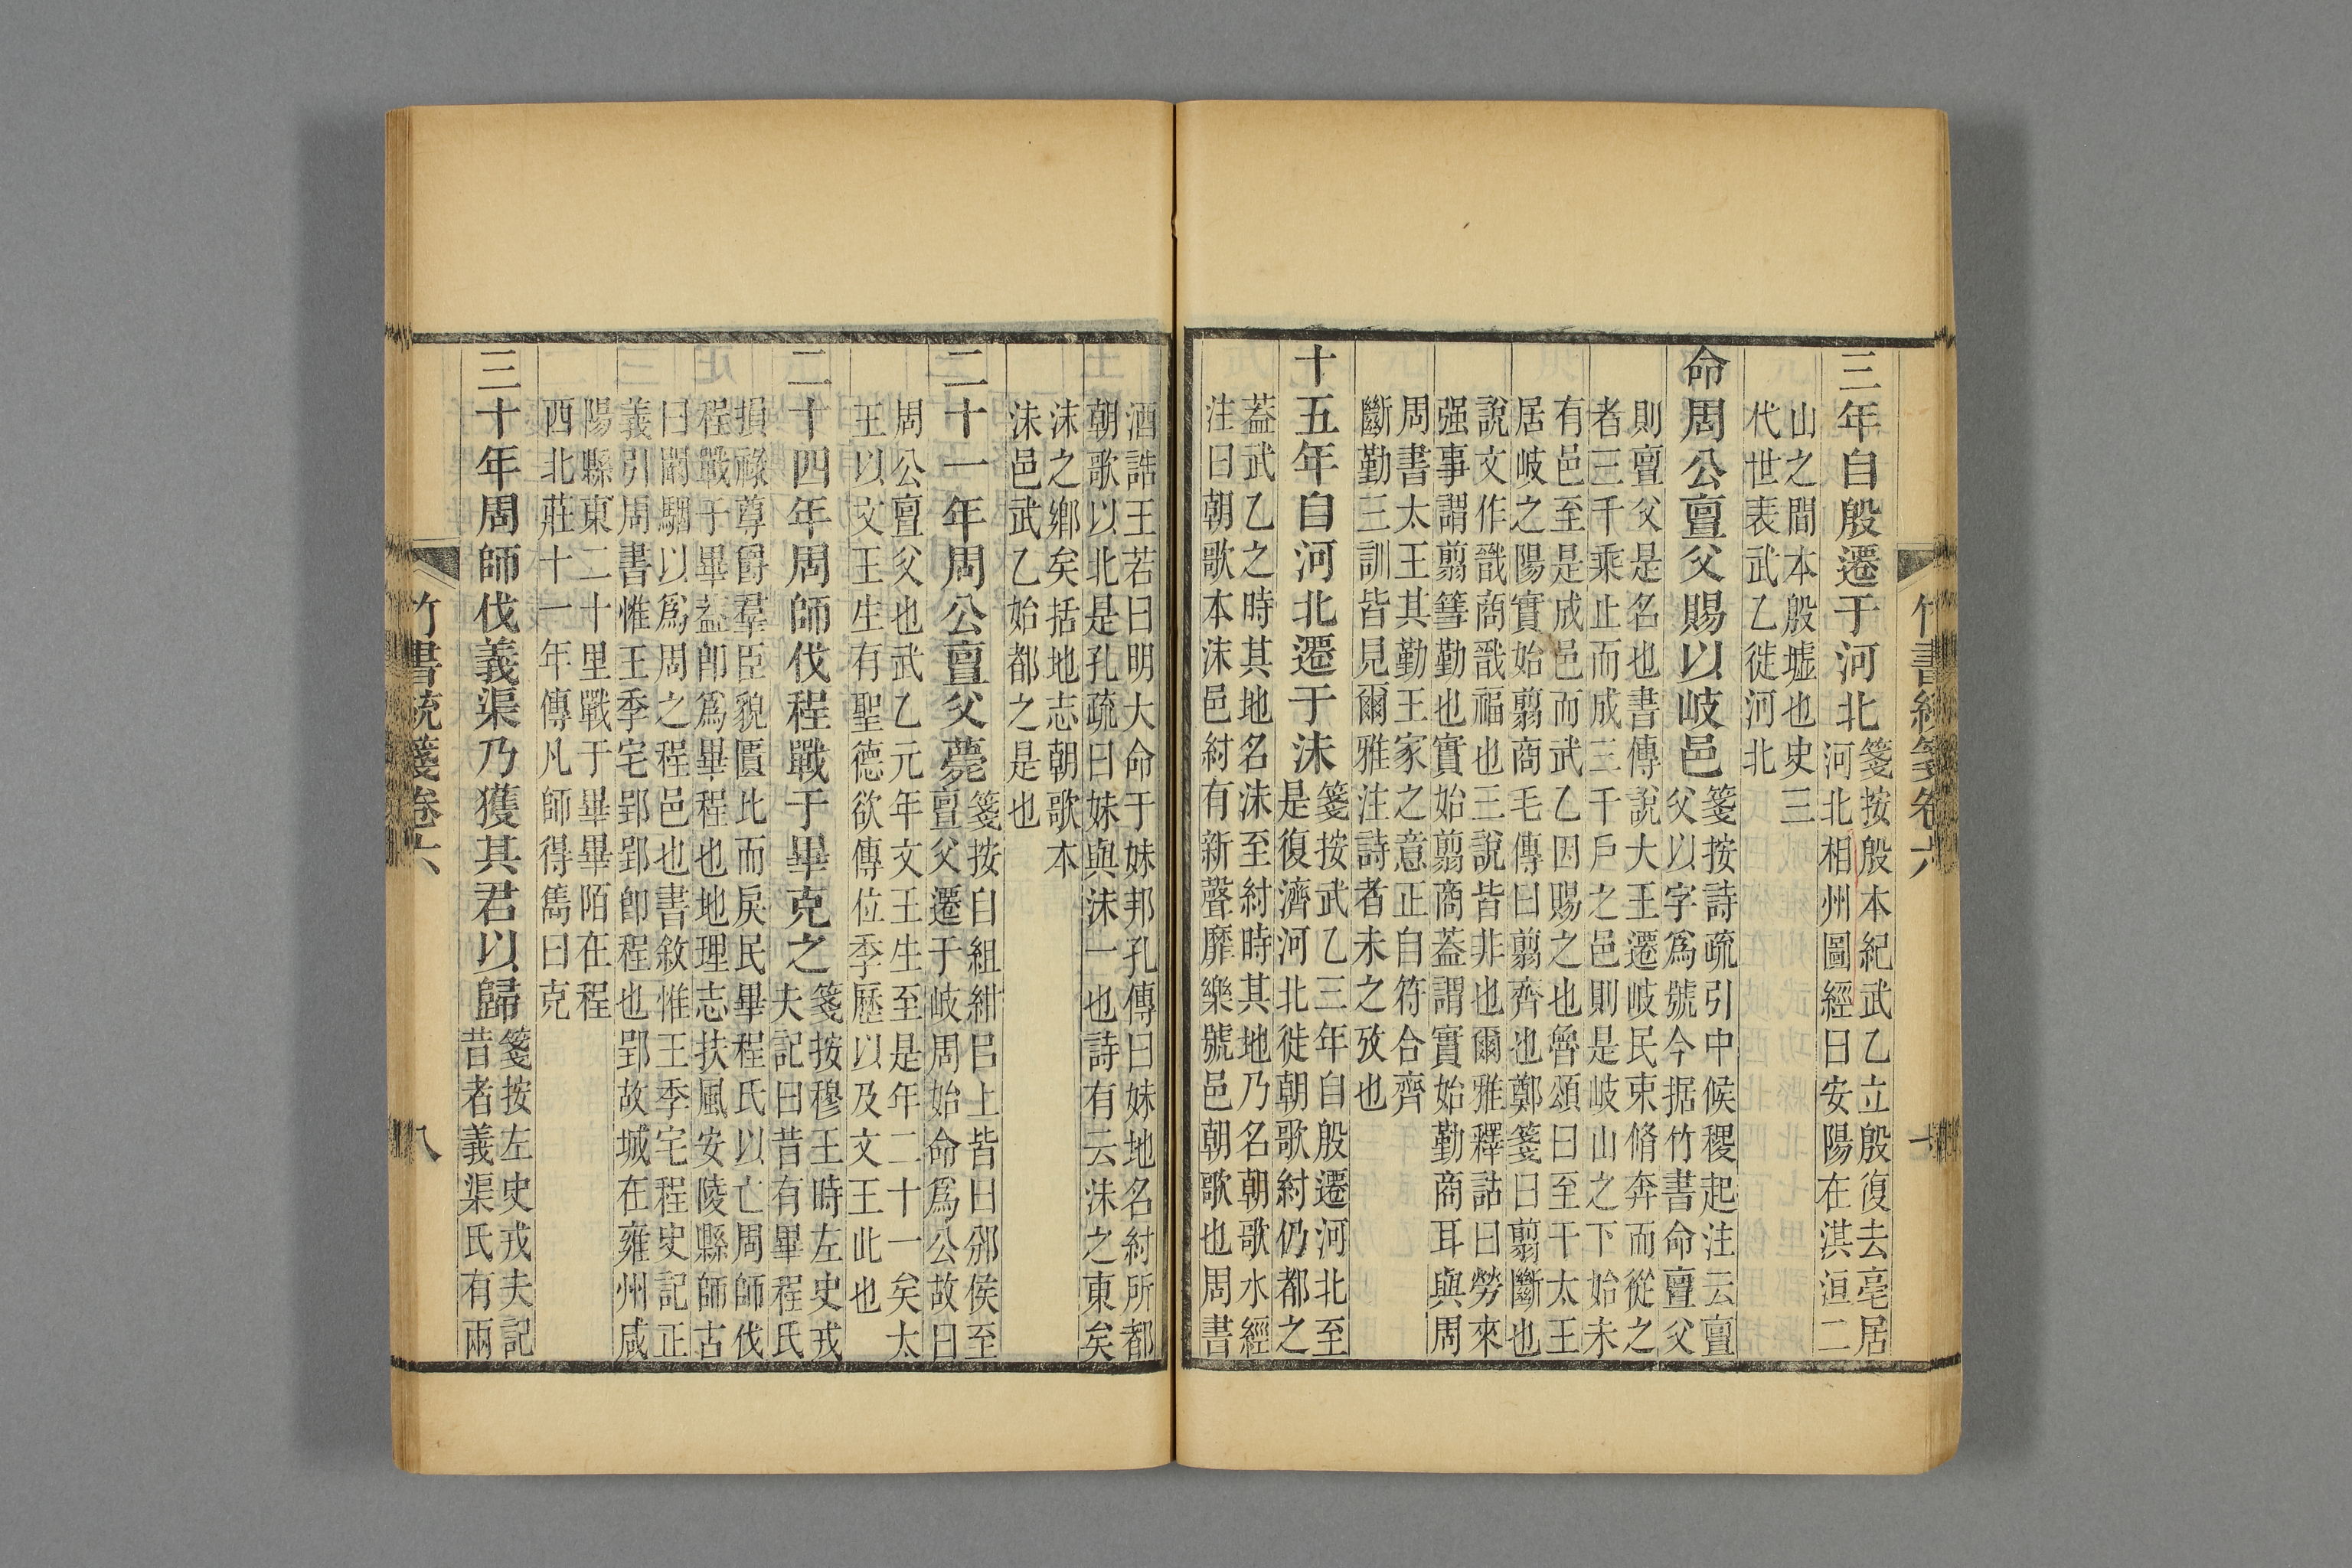 三年自殷遷于河北箋按殷本紀武乙立殷復去亳居
河北相州圖經曰安陽在淇洹二
山之間本殷墟也史三
代世表武乙徙河北
命周公亶父賜以岐邑箋按詩疏引中候稷起注云亶
父以字為號今据竹書命亶父
則亶父是名也書傳說大王遷岐民束脩奔而從之
者三千乘止而成三千戶之邑則是岐山之下始未
有邑至是成邑而武乙因賜之也魯頌曰至于太王
居岐之陽實始翦商毛傳曰翦齊也鄭箋曰翦斷也
說文作戩商戩福也三說皆非也爾雅釋詁曰勞來
强事謂翦篲勤也實始翦商蓋謂實始勤商耳與周
周書太王其勤王家之意正自符合齊
斷勤三訓皆見爾雅注詩者未之攷也
十五年自河北遷于沬箋按武乙三年自殷遷河北至
是復濟河北徙朝歌紂仍都之
蓋武乙之時其地名沬至紂時其地乃名朝歌水經
注曰朝歌本沬邑紂有新聲靡樂號邑朝歌也周書
竹書統箋卷六
七
酒誥王若曰明大命于妹邦孔傳曰妹地名紂所都
朝歌以北是孔疏曰妹與沬一也詩有云沬之東矣
沬之鄉矣括地志朝歌本
沬邑武乙始都之是也
二十一年周公亶父薨箋按自組紺㠯上皆曰邠侯至
亶父遷于岐周始命為公故曰
周公亶父也武乙元年文王生至是年二十一矣太
王以文王生有聖德欲傳位季歷以及文王此也
二十四年周師伐程戰于畢克之箋按穆王時左史戎
夫記曰昔有畢程氏
損祿尊爵羣臣貌匱比而戾民畢程氏以亡周師伐
程戰于畢蓋卽為畢程也地理志扶風安陵縣師古
曰闞駰以為周之程邑也書敘惟王季宅程史記正
義引周書惟王季宅郢郢卽程也郢故城在雍州咸
陽縣東二十里戰于畢畢陌在程
西北莊十一年傳凡師得雋曰克
三十年周師伐義渠乃獲其君以歸箋按左史戎夫記
昔者義渠氏有兩
竹書統箋卷六
八